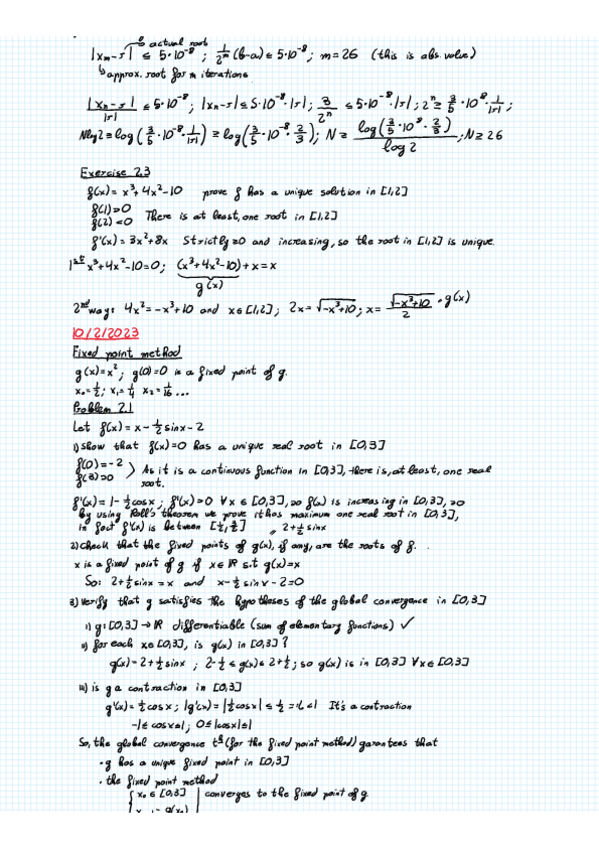 ↳ actual root
|xₘ-r| ≤ 5·10⁻⁸ ; 1/2ᵐ (b-a) ≤ 5·10⁻⁸ ; m = 26 (this is abs. value)
↳ approx. root for m iterations
|xₙ-r|/|r| ≤ 5·10⁻⁸ ; |xₙ-r| ≤ 5·10⁻⁸·|r| ; 3/2ⁿ ≤ 5·10⁻⁸·|r| ; 2ⁿ ≥ 3/5·10⁸·1/|r| ;
N log 2 ≥ log(3/5·10⁻⁸·1/|r|) ≥ log(3/5·10⁻⁸·2/3) ; N ≥ log(3/5·10⁸·2/3)/log 2 ; N ≥ 26
Exercise 2.3
f(x) = x³+4x²-10 prove f has a unique solution in [1,2]
f(1)>0
f(2)<0 There is at least, one root in [1,2]
f'(x) = 3x²+8x Strictly >0 and increasing, so the root in [1,2] is unique.
1st x³+4x²-10=0; (x³+4x²-10)+x = x
g(x)
2nd way: 4x² = -x³+10 and x∈[1,2]; 2x = √(-x³+10) ; x = √(-x³+10)/2 · g(x)
10/2/2023
Fixed point method
g(x)=x² ; g(0)=0 is a fixed point of g.
x₀=1/2 ; x₁=1/4 x₂=1/16 ...
Problem 2.1
Let f(x) = x - 1/2 sinx - 2
1) Show that f(x)=0 has a unique real root in [0,3]
f(0)=-2
f(3)>0 > As it is a continuous function in [0,3], there is, at least, one real
root.
f'(x) = 1-1/2 cosx ; f'(x)>0 ∀x∈[0,3], so f(x) is increasing in [0,3], so
by using Roll's theorem we prove it has maximum one real root in [0,3],
in fact f'(x) is between [1/2, 3/2] = 2+1/2 sinx
2) Check that the fixed points of g(x), if any, are the roots of f.
x is a fixed point of g if x∈ℝ s.t g(x)=x
So: 2+1/2 sinx = x and x-1/2 sinx-2=0
3) Verify that g satisfies the hypotheses of the global convergence in [0,3]
i) g: [0,3] → ℝ differentiable (sum of elementary functions) ✓
ii) for each x∈[0,3], is g(x) in [0,3]?
g(x) = 2+1/2 sinx ; 2-1/2 ≤ g(x) ≤ 2+1/2 ; so g(x) is in [0,3] ∀x∈[0,3]
iii) is g a contraction in [0,3]
g'(x) = 1/2 cosx ; |g'(x)| = |1/2 cosx| ≤ 1/2 = L < 1 It's a contraction
-1 ≤ cosx ≤ 1 ; 0 ≤ |cosx| ≤ 1
So, the global convergence th (for the fixed point method) garantees that
· g has a unique fixed point in [0,3]
· the fixed point method
{ x₀ ∈ [0,3] | converges to the fixed point of g.